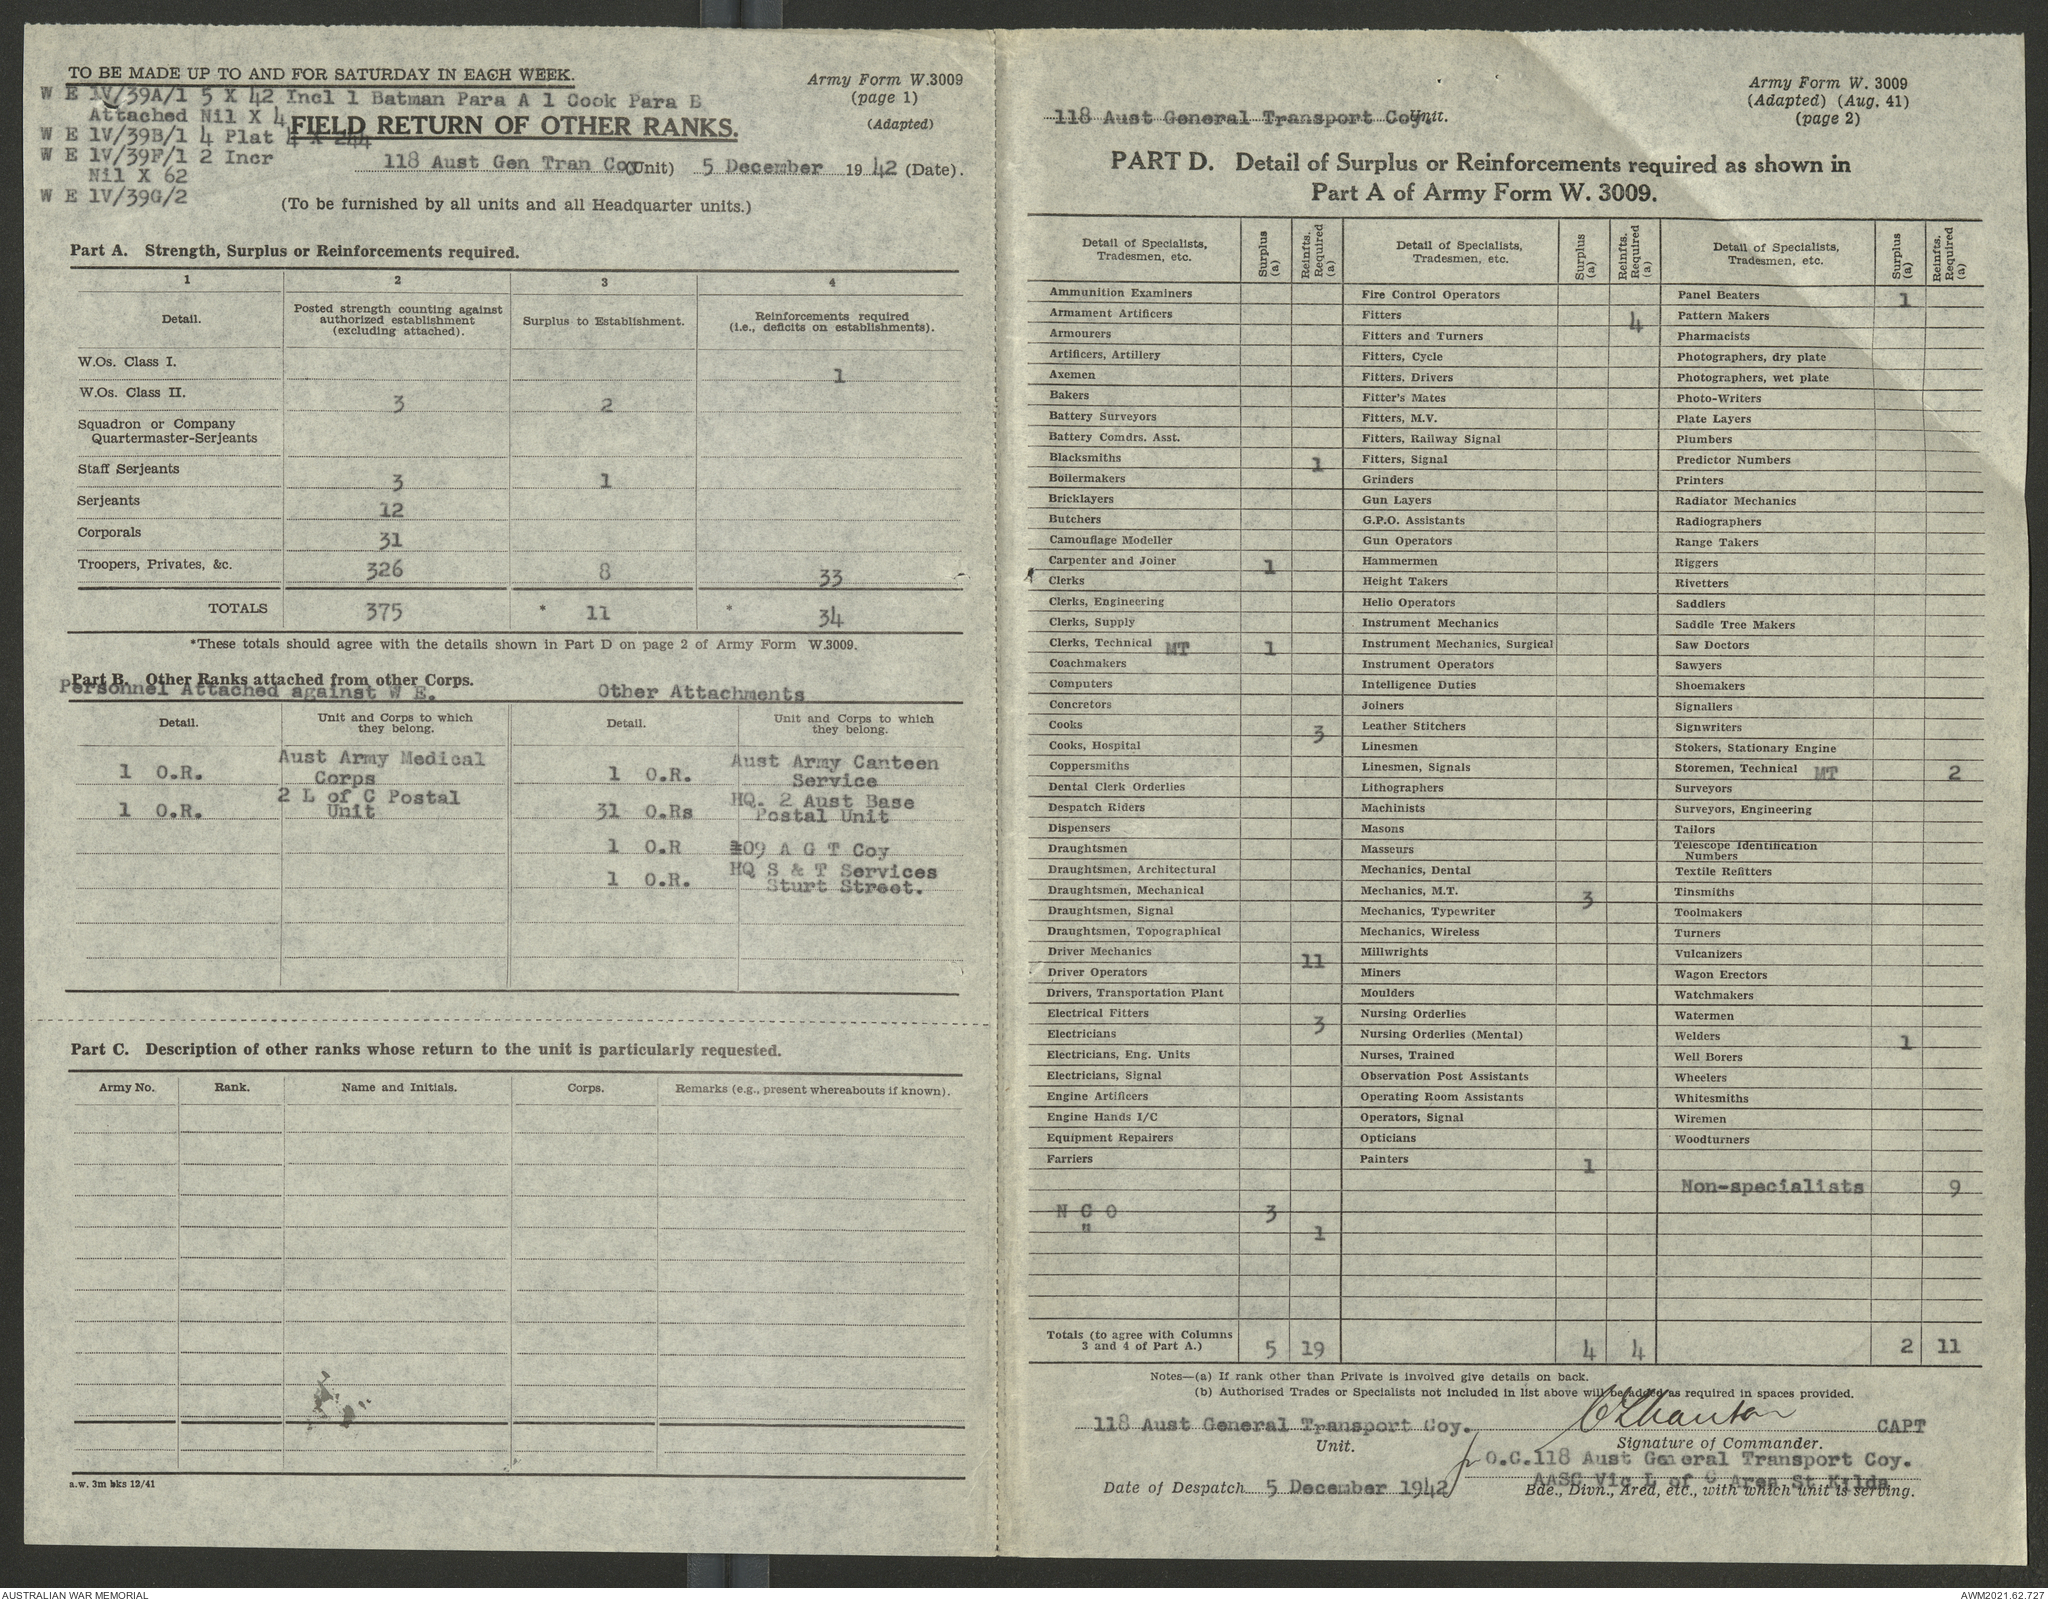 TO BE MADE UP TO AND FOR SATURDAY IN EACH WEEK.
Army Form W.3009
(page 1)
(Adapted)
W E 1V/39A/1 5 X 42 Incl 1 Batman Para A 1 Cook Para B
Attached Nil X 4
W E 1V/39B/1 4 Plat 4 X 244
W E 1V/39F/1 2 Incr
Nil X 62
W E 1V/39G/2
FIELD RETURN OF OTHER RANKS.
118 Aust Gen Tran Coy (Unit) 5 December 1942 (Date).
(To be furnished by all units and all Headquarter units.)
Part A. Strength, Surplus or Reinforcements required.
1 2 3 4
Detail.
Posted strength counting against authorized establishment (excluding attached).
Surplus to Establishment.
Reinforcements required (i.e., deficits on establishments).
W.Os. Class I. 1
W.Os. Class II. 3 2
Squadron or Company
Quartermaster-Serjeants
Staff Serjeants 3 1
Serjeants 12
Corporals 31
Troopers, Privates, &c. 326 8 33
TOTALS 375 * 11 * 34
*These totals should agree with the details shown in Part D on page 2 of Army Form W.3009.
Part B. Other Ranks attached from other Corps.
Personnel Attached against W E. Other Attachments
Detail. Unit and Corps to which they belong. Detail. Unit and Corps to which they belong.
1 O.R. Aust Army Medical Corps 1 O.R. Aust Army Canteen Service
1 O.R. 2 L of C Postal Unit 31 O.Rs HQ. 2 Aust Base Postal Unit
1 O.R 109 A G T Coy
1 O.R. HQ S & T Services Sturt Street.
Part C. Description of other ranks whose return to the unit is particularly requested.
Army No. Rank. Name and Initials. Corps. Remarks (e.g., present whereabouts if known).
a.w. 3m bks 12/41
Army Form W. 3009
(Adapted) (Aug. 41)
(page 2)
118 Aust General Transport Coy. Unit.
PART D. Detail of Surplus or Reinforcements required as shown in
Part A of Army Form W. 3009.
Detail of Specialists, Tradesmen, etc. Surplus (a) Reinfts. Required (a)
Ammunition Examiners
Armament Artificers
Armourers
Artificers, Artillery
Axemen
Bakers
Battery Surveyors
Battery Comdrs. Asst.
Blacksmiths 1
Boilermakers
Bricklayers
Butchers
Camouflage Modeller
Carpenter and Joiner 1
Clerks
Clerks, Engineering
Clerks, Supply
Clerks, Technical MT 1
Coachmakers
Computers
Concretors
Cooks 3
Cooks, Hospital
Coppersmiths
Dental Clerk Orderlies
Despatch Riders
Dispensers
Draughtsmen
Draughtsmen, Architectural
Draughtsmen, Mechanical
Draughtsmen, Signal
Draughtsmen, Topographical
Driver Mechanics 11
Driver Operators
Drivers, Transportation Plant
Electrical Fitters 3
Electricians
Electricians, Eng. Units
Electricians, Signal
Engine Artificers
Engine Hands I/C
Equipment Repairers
Farriers
N C O 3
" 1
Totals (to agree with Columns 3 and 4 of Part A.) 5 19
Detail of Specialists, Tradesmen, etc. Surplus (a) Reinfts. Required (a)
Fire Control Operators
Fitters 4
Fitters and Turners
Fitters, Cycle
Fitters, Drivers
Fitter's Mates
Fitters, M.V.
Fitters, Railway Signal
Fitters, Signal
Grinders
Gun Layers
G.P.O. Assistants
Gun Operators
Hammermen
Height Takers
Helio Operators
Instrument Mechanics
Instrument Mechanics, Surgical
Instrument Operators
Intelligence Duties
Joiners
Leather Stitchers
Linesmen
Linesmen, Signals
Lithographers
Machinists
Masons
Masseurs
Mechanics, Dental
Mechanics, M.T. 3
Mechanics, Typewriter
Mechanics, Wireless
Millwrights
Miners
Moulders
Nursing Orderlies
Nursing Orderlies (Mental)
Nurses, Trained
Observation Post Assistants
Operating Room Assistants
Operators, Signal
Opticians
Painters 1
4 4
Detail of Specialists, Tradesmen, etc. Surplus (a) Reinfts. Required (a)
Panel Beaters 1
Pattern Makers
Pharmacists
Photographers, dry plate
Photographers, wet plate
Photo-Writers
Plate Layers
Plumbers
Predictor Numbers
Printers
Radiator Mechanics
Radiographers
Range Takers
Riggers
Rivetters
Saddlers
Saddle Tree Makers
Saw Doctors
Sawyers
Shoemakers
Signallers
Signwriters
Stokers, Stationary Engine
Storemen, Technical MT 2
Surveyors
Surveyors, Engineering
Tailors
Telescope Identification Numbers
Textile Refitters
Tinsmiths
Toolmakers
Turners
Vulcanizers
Wagon Erectors
Watchmakers
Watermen
Welders 1
Well Borers
Wheelers
Whitesmiths
Wiremen
Woodturners
Non-specialists 9
2 11
Notes—(a) If rank other than Private is involved give details on back.
(b) Authorised Trades or Specialists not included in list above will be added as required in spaces provided.
118 Aust General Transport Coy. CAPT
Unit. Signature of Commander.
O.C.118 Aust General Transport Coy.
AASC Vic L of C Area St Kilda
Date of Despatch 5 December 1942
Bde., Divn., Ared, etc., with which unit is serving.
AUSTRALIAN WAR MEMORIAL
AWM2021.62.727